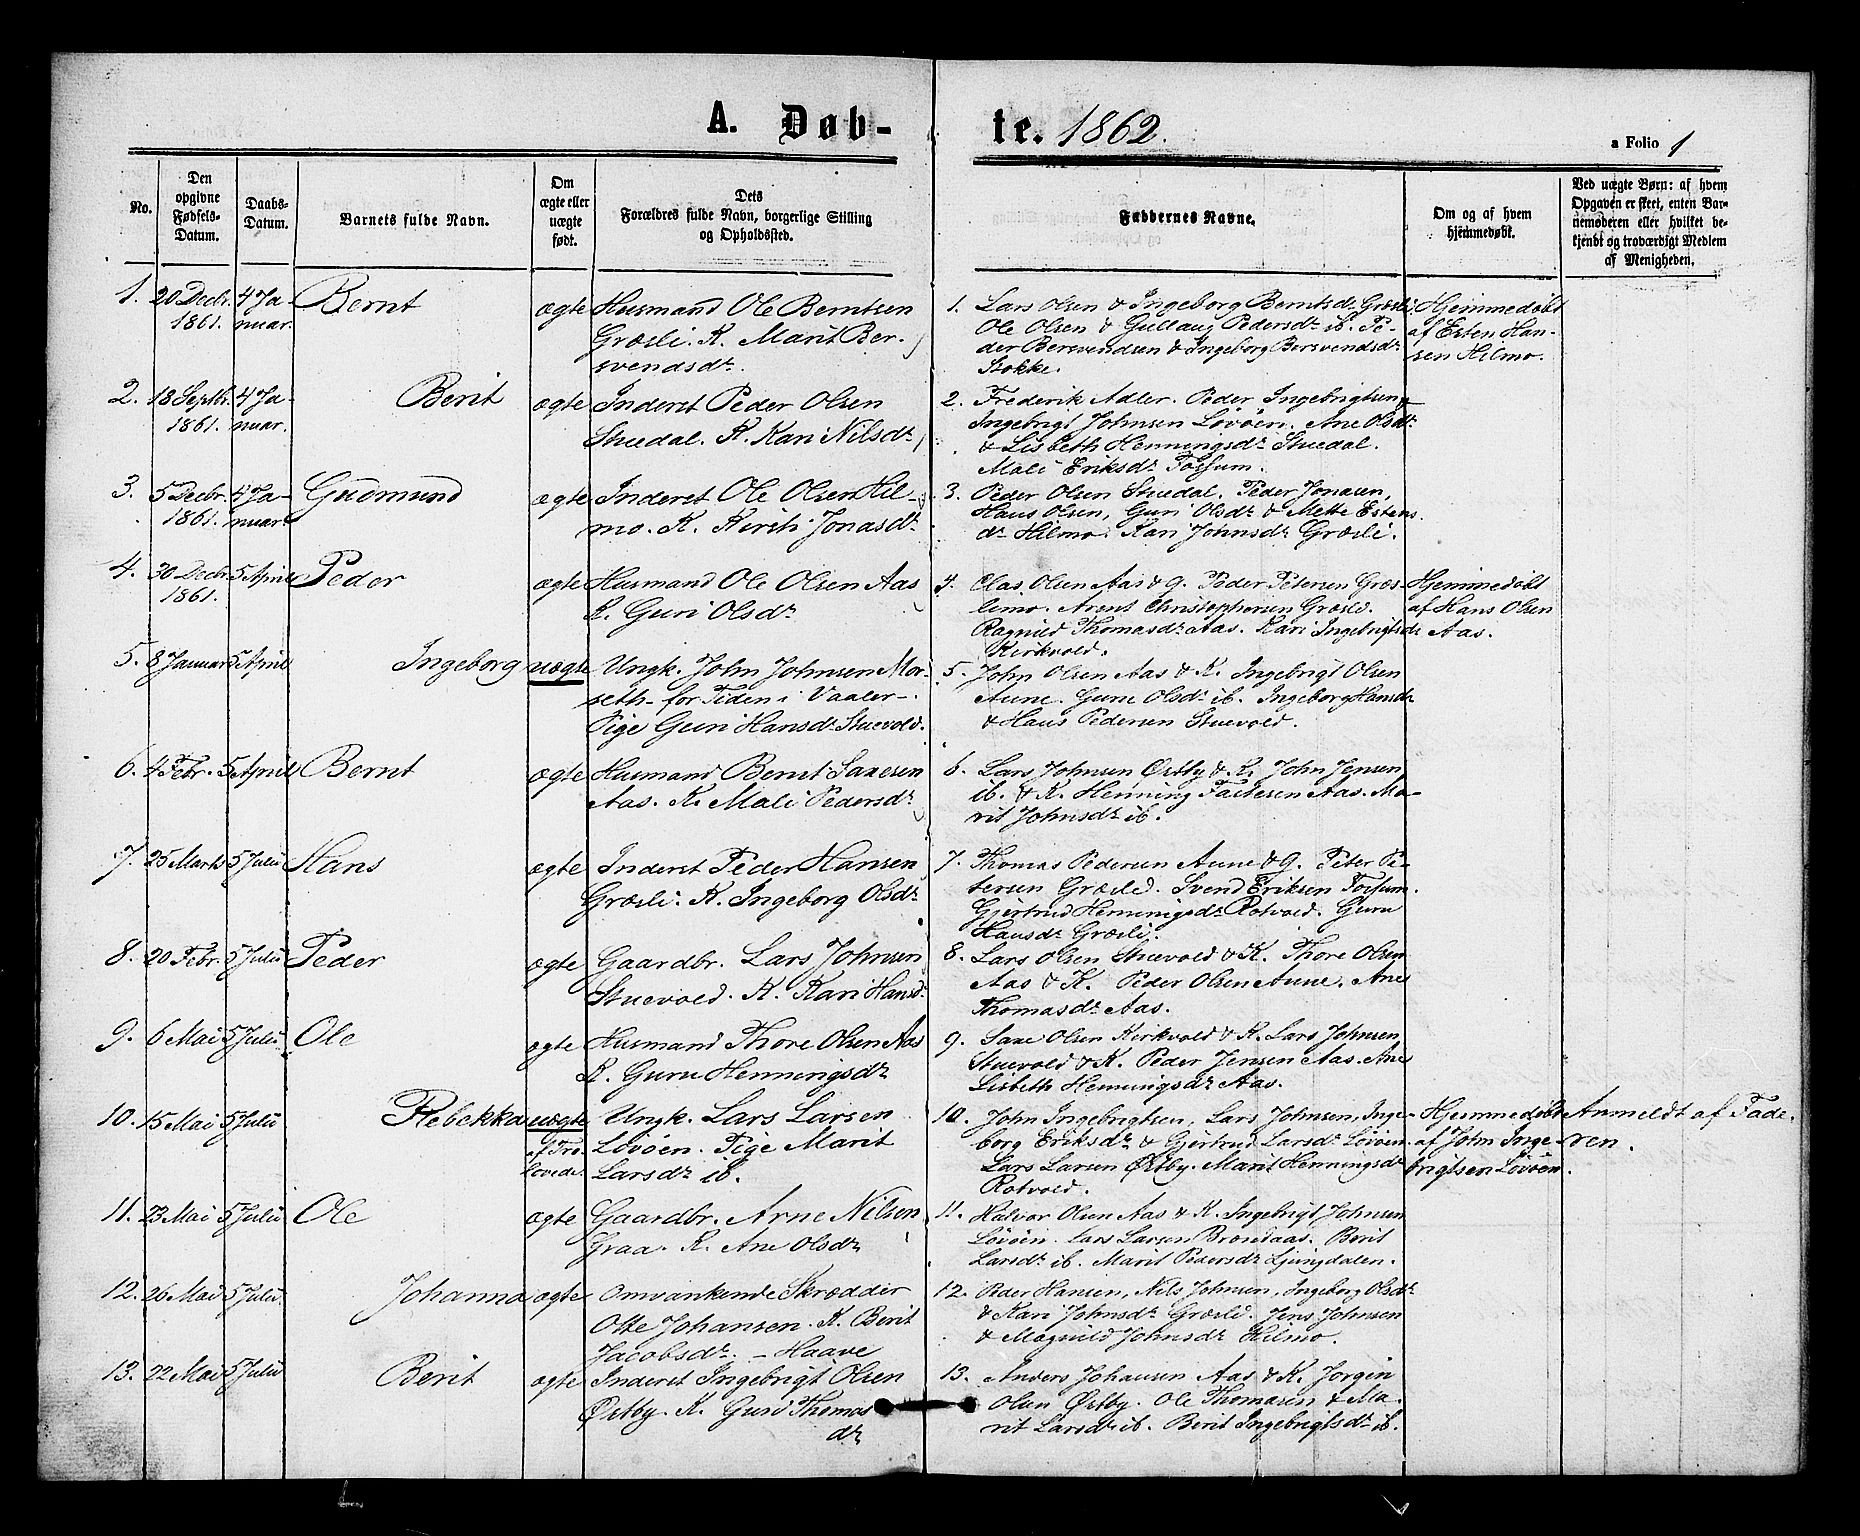 A. Døb-
te. 1862.
a Folio 1
No.
Den
opgivne
Fødsels-
Datum.
Daabs-
Datum.
Barnets fulde Navn.
Om
ægte eller
uægte
født.
Dets
Forældres fulde Navn, borgerlige Stilling
og Opholdssted.
Faddernes Navne.
Om og af hvem
hjemmedøbt.
Ved uægte Børn: af hvem
Opgaven er skeet, enten Bar-
nemoderen eller hvilket be-
kjendt og troværdigt Medlem
af Menigheden.
1. 20 Decbr. 4 Ja- Bernt ægte Husmand Ole Berntsen
1861. nuar. Græsli. K. Marit Ber-
svendsdr.
1. Lars Olsen & Ingeborg Berntsdr Græsli,
Ole Olsen & Gullaug Pedersdr ib. Pe-
der Bersvendsen & Ingeborg Bersvendsdr
Stokke.
Hjemmedøbt
af Esten Han-
sen Hilmo.
2. 18 Septbr. 4 Ja- Berit ægte Inderst Peder Olsen
1861. nuar. Stuedal. K. Kari Nilsdr
2. Frederik Adler. Peder Ingebrigtsen,
Ingebrigt Johnsen Løvøen. Ane Olsdr
& Lisbeth Henningsdr Stuedal.
Mali Eriksdr Fossum.
3. 5 Decbr. 4 Ja- Gudmund ægte Inderst Ole Olsen Hil-
1861. nuar. mo. K. Kirsti Jonasdr
3. Peder Olsen Stuedal. Peder Jonasen,
Hans Olsen, Guri Olsdr & Mette Estens-
dr Hilmo. Kari Johnsdr Græsli.
4. 30 Decbr. 5 April Peder ægte Husmand Ole Olsen Aas
1861. K. Guri Olsdr
4. Clas Olsen Aas & g. Peder Petersen Græs-
limo. Arent Christophersen Græsli.
Ragnild Thomasdr Aas. Kari Ingebrigtsdr
Kirkvold.
Hjemmedøbt
af Hans Olsen
Aas.
5. 8 Januar 5 April Ingeborg uægte Ungk. John Johnsen Mor-
seth- for Tiden i Vaaler-
Pige Guri Hansdr Stuevold.
5. John Olsen Aas & K. Ingebrigt Olsen
Aune. Guru Olsdr ib. Ingeborg Hansdr
& Hans Pedersen Stuevold.
6. 4 Febr. 5 April Bernt ægte Husmand Bernt Saxesen
Aas. K. Mali Pedersdr
6. Lars Johnsen Østby & K. John Jensen
ib. & K. Henning Fastesen Aas. Ma-
rit Johnsdr ib.
7. 25 Marts 5 Julii Hans ægte Inderst Peder Hansen
Græsli. K. Ingeborg Olsdr
7. Thomas Pedersen Aune & g. Peter Pe-
tersen Græsli. Svend Eriksen Fossum.
Gjertrud Henningsdr Rotvold. Guru
Hansdr Græsli.
8. 20 Febr. 5 Julii Peder ægte Gaardbr. Lars Johnsen
Stuevold. K. Kari Hansdr
8. Lars Olsen Stuevold & K. Thore Olsen
Aas & K. Peder Olsen Aune. Ane
Thomasdr Aas.
9. 6 Mai 5 Julii Ole ægte Husmand Thore Olsen Aas
K. Guru Henningsdr
9. Saxe Olsen Kirkvold & K. Lars Johnsen
Stuevold & K. Peder Jensen Aas. Ane
Lisbeth Henningsdr Aas.
10. 15 Mai 5 Julii Rebekka uægte Ungk. Lars Larsen
af Tro- Løvøen. Pige Marit
lovede. Larsdr ib.
10. John Ingebrigtsen, Lars Johnsen, Inge-
borg Eriksdr & Gjertrud Larsdr Løvøen.
Lars Larsen Østby. Marit Henningsdr
Rotvold.
Hjemmedøbt
af John Inge-
brigtsen Løvøen.
Anmeldt af Fade-
ren.
11. 23 Mai 5 Julii Ole ægte Gaardbr. Arne Nilsen
Graa. K. Ane Olsdr
11. Halvor Olsen Aas & K. Ingebrigt Johnsen
Løvøen. Lars Larsen Brændaas. Berit
Larsdr ib. Marit Pedersdr Ljungdalen.
12. 26 Mai 5 Julii Johanna ægte Omvankende Skrædder
Otte Johansen. K. Berit
Jacobsdr. - Haave
12. Peder Hansen, Nils Johnsen, Ingeborg Olsdr
& Kari Johnsdr Græsli. Jens Johnsen
& Magnild Johnsdr Hilmo.
13. 22 Mai 5 Julii Berit ægte Inderst Ingebrigt Olsen
Østby. K. Guri Thomas
dr
13. Anders Johansen Aas & K. Jørgen
Olsen Østby. Ole Thomasen & Ma-
rit Larsdr ib. Berit Ingebrigtsdr ib.